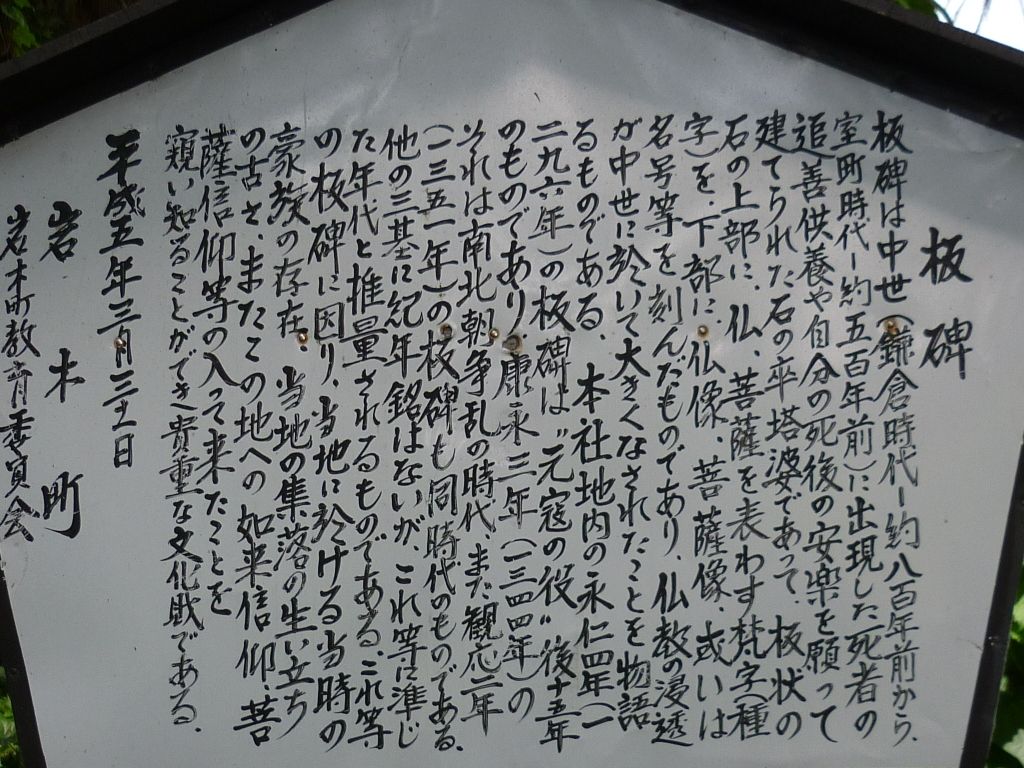 板碑
板碑は中世(鎌倉時代ー約八百年前から、
室町時代ー約五百年前)に出現した死者の
追善供養や自分の死後の安楽を願って
建てられた石の卒塔婆であって、板状の
石の上部に、仏、菩薩を表わす梵字(種
字)を、下部に、仏像、菩薩像、或いは
名号等を刻んだものであり、仏教の浸透
が中世に於いて大きくなされたことを物語
るものである。本社地内の永仁四年(一
二九六年)の板碑は〝元寇の役〟後十五年
のものであり、康永三年(一三四四年)の
それは南北朝争乱の時代、また観応二年
(一三五一年)の板碑も同時代のものである。
他の三基に紀年銘はないが、これ等に準じ
た年代と推量されるものである。これ等
の板碑に因り、当地に於ける当時の
豪族の存在、当地の集落の生い立ち
の古さ、またこの地への如来信仰、菩
薩信仰等の入って来たことを
窺い知ることができ貴重な文化財である。
平成五年三月三十一日
岩木町
岩木町教育委員会